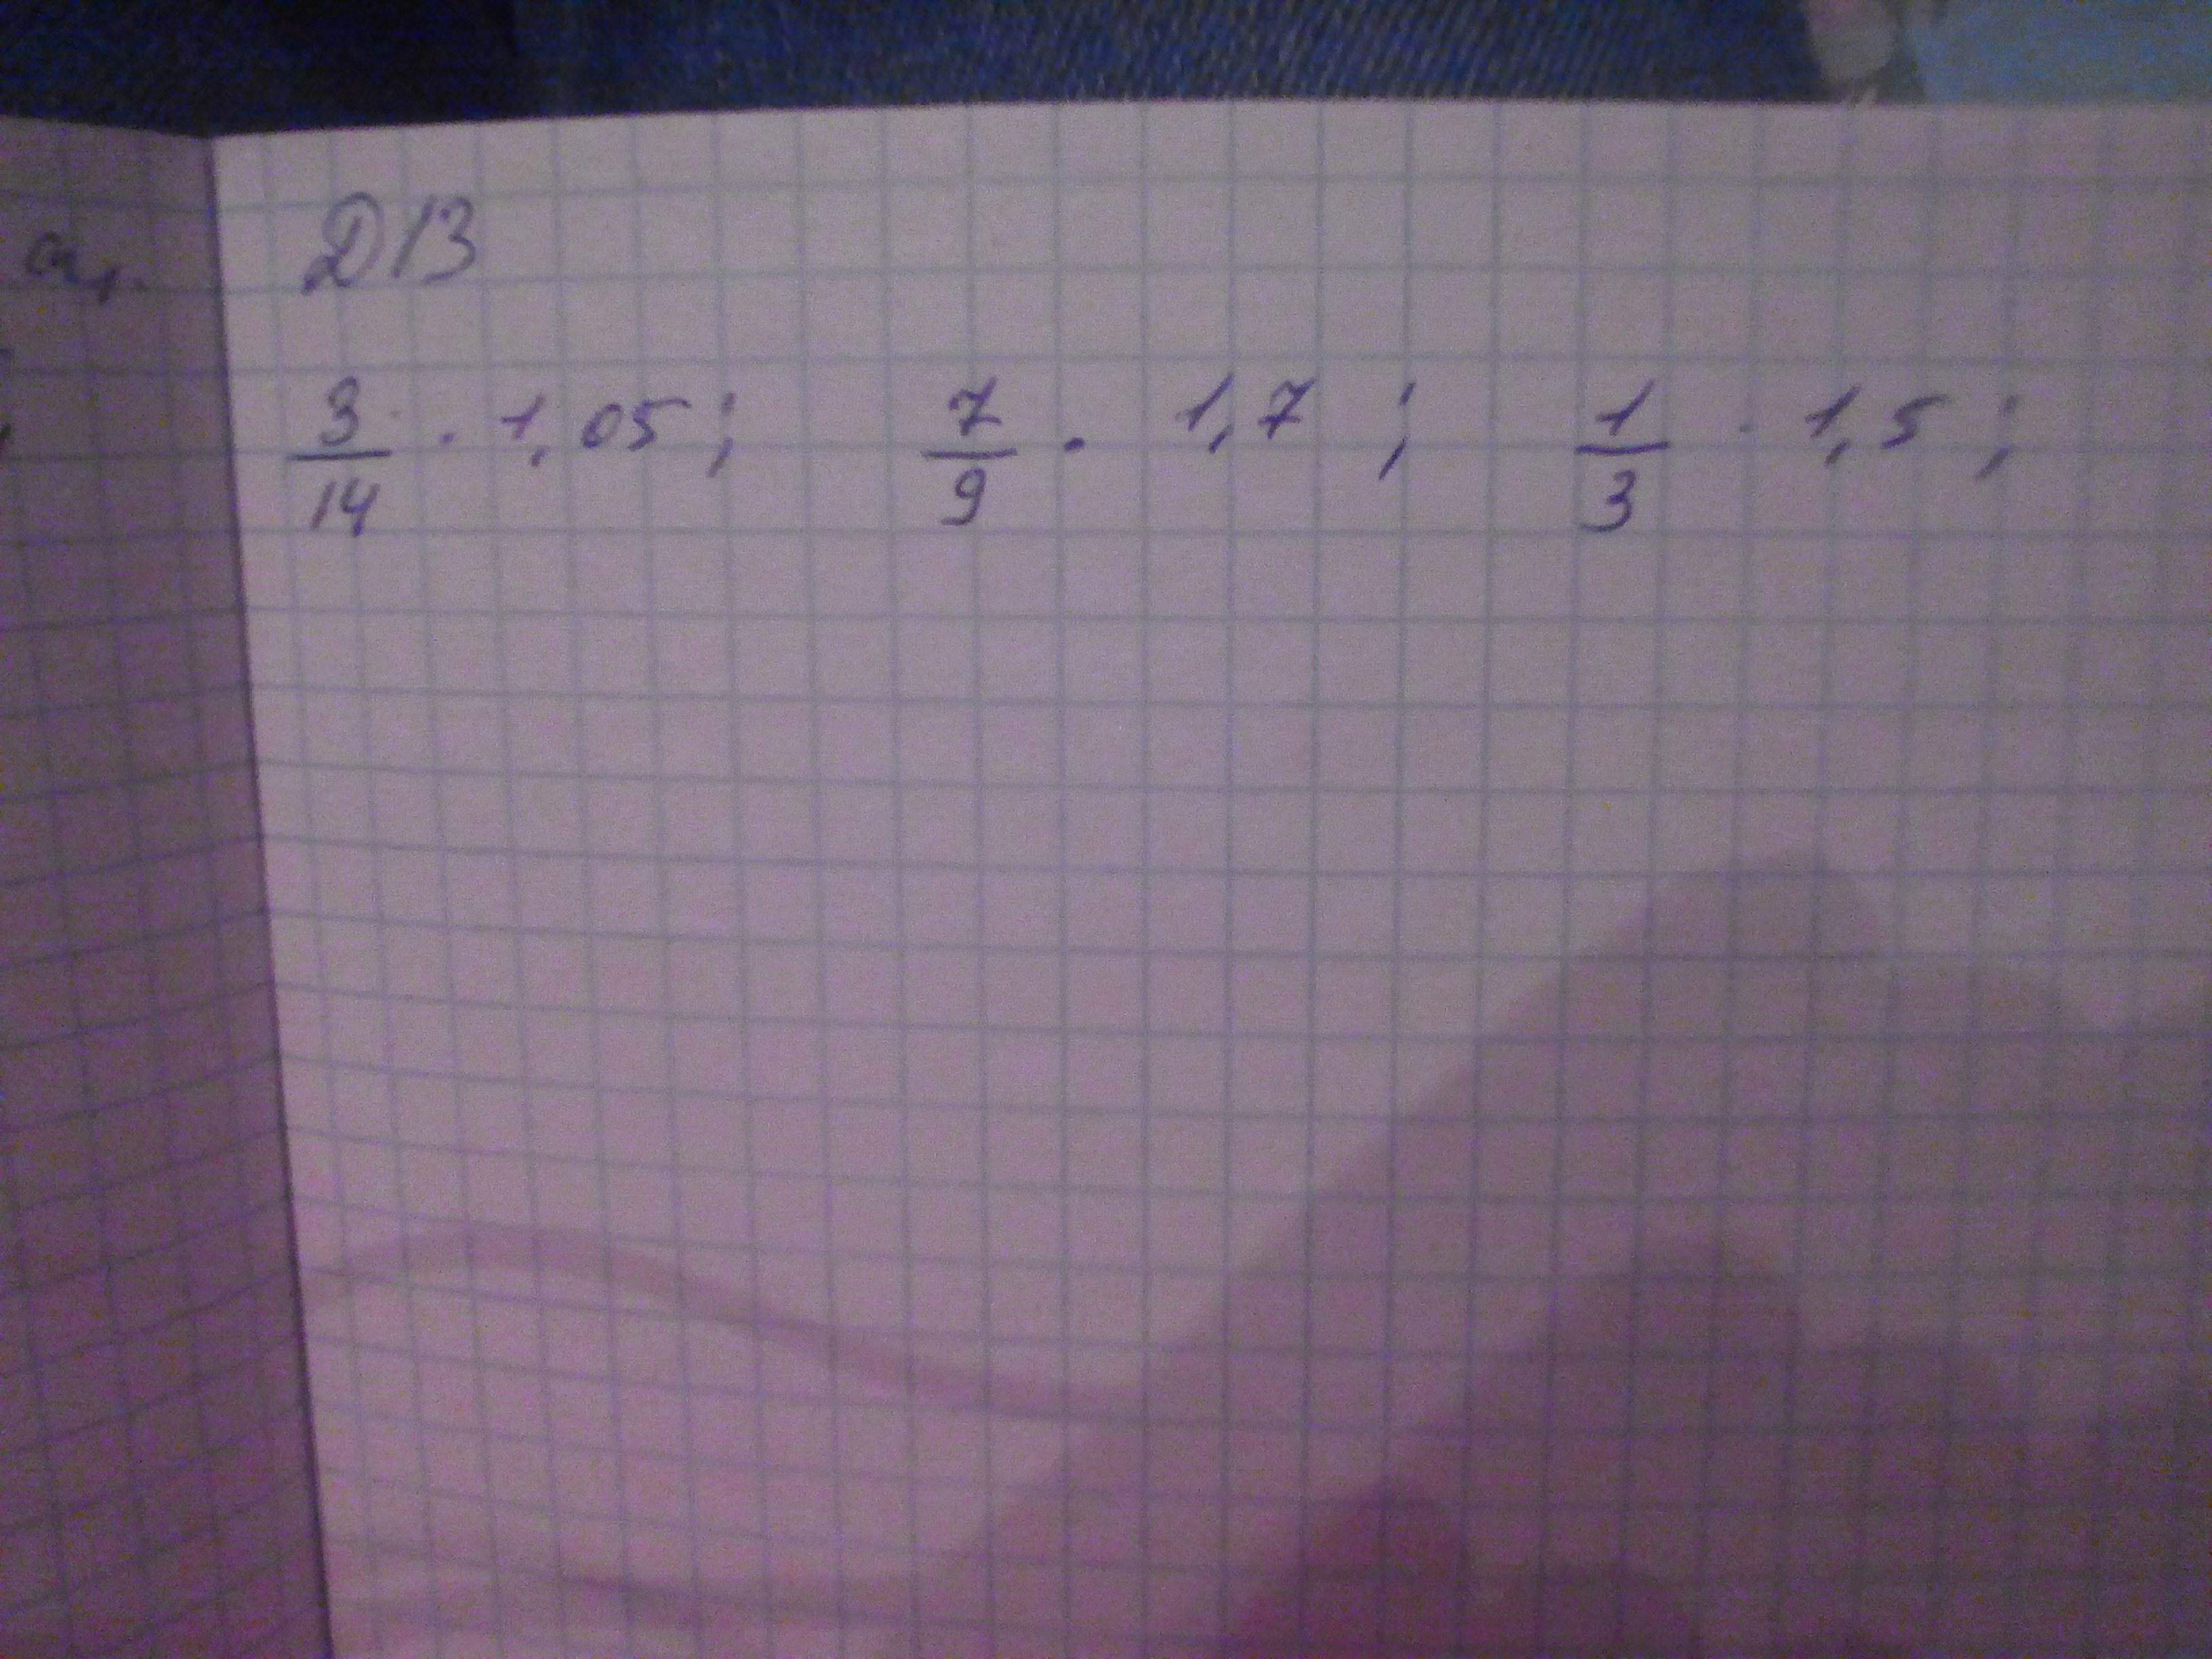 Д/З
3/14 · 1,05; 7/9 · 1,7; 1/3 · 1,5;